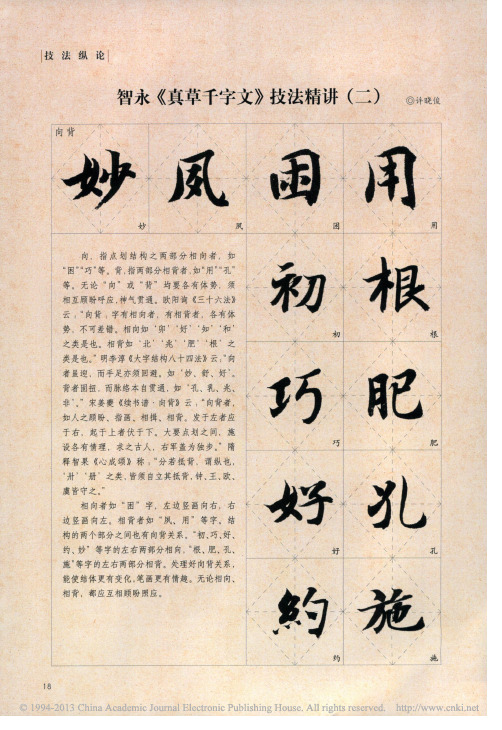 技法纵论
智永《真草千字文》技法精讲（二） ◎许晓俊
向背
妙 夙 困 用
妙 夙 困 用
向，指点划结构之两部分相向者，如
“困”“巧”等。背，指两部分相背者，如“用”“孔”
等。无论“向”或“背”均要各有体势，须
相互顾盼呼应，神气贯通。欧阳询《三十六法》
云，“向背，字有相向者，有相背者，各有体
势，不可差错。相向如‘卯’‘好’‘知’‘和’
之类是也。相背如‘北’‘兆’‘肥’‘根’之
类是也。”明李淳《大字结构八十四法》云，“向
者虽迎，而手足亦须回避。如‘妙、舒、好’。
背者固扭，而脉络本自贯通，如‘孔、乳、兆、
非’。”宋姜夔《续书谱·向背》云，“向背者，
如人之顾盼、指画、相揖、相背。发于左者应
于右，起于上者伏于下。大要点划之间，施
设各有情理，求之古人，右军盖为独步。”隋
释智果《心成颂》称：“分若抵背，谓纵也，
‘卅’‘册’之类，皆须自立其抵背，钟、王、欧、
虞皆守之。”
相向者如“困”字，左边竖画向右，右
边竖画向左。相背者如“夙、用”等字。结
构的两个部分之间也有向背关系。“初、巧、好、
约、妙”等字的左右两部分相向，“根、肥、孔、
施”等字的左右两部分相背。处理好向背关系，
能使结体更有变化，笔画更有情趣。无论相向、
相背，都应互相顾盼照应。
初 根
初 根
巧 肥
巧 肥
好 孔
好 孔
約 施
约 施
18
© 1994-2013 China Academic Journal Electronic Publishing House. All rights reserved. http://www.cnki.net